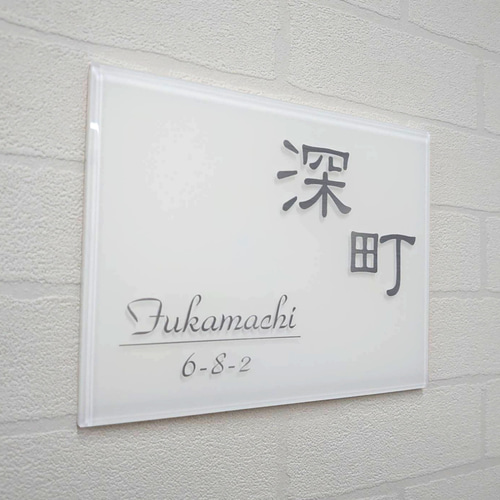 深町
Fukamachi
6-8-2